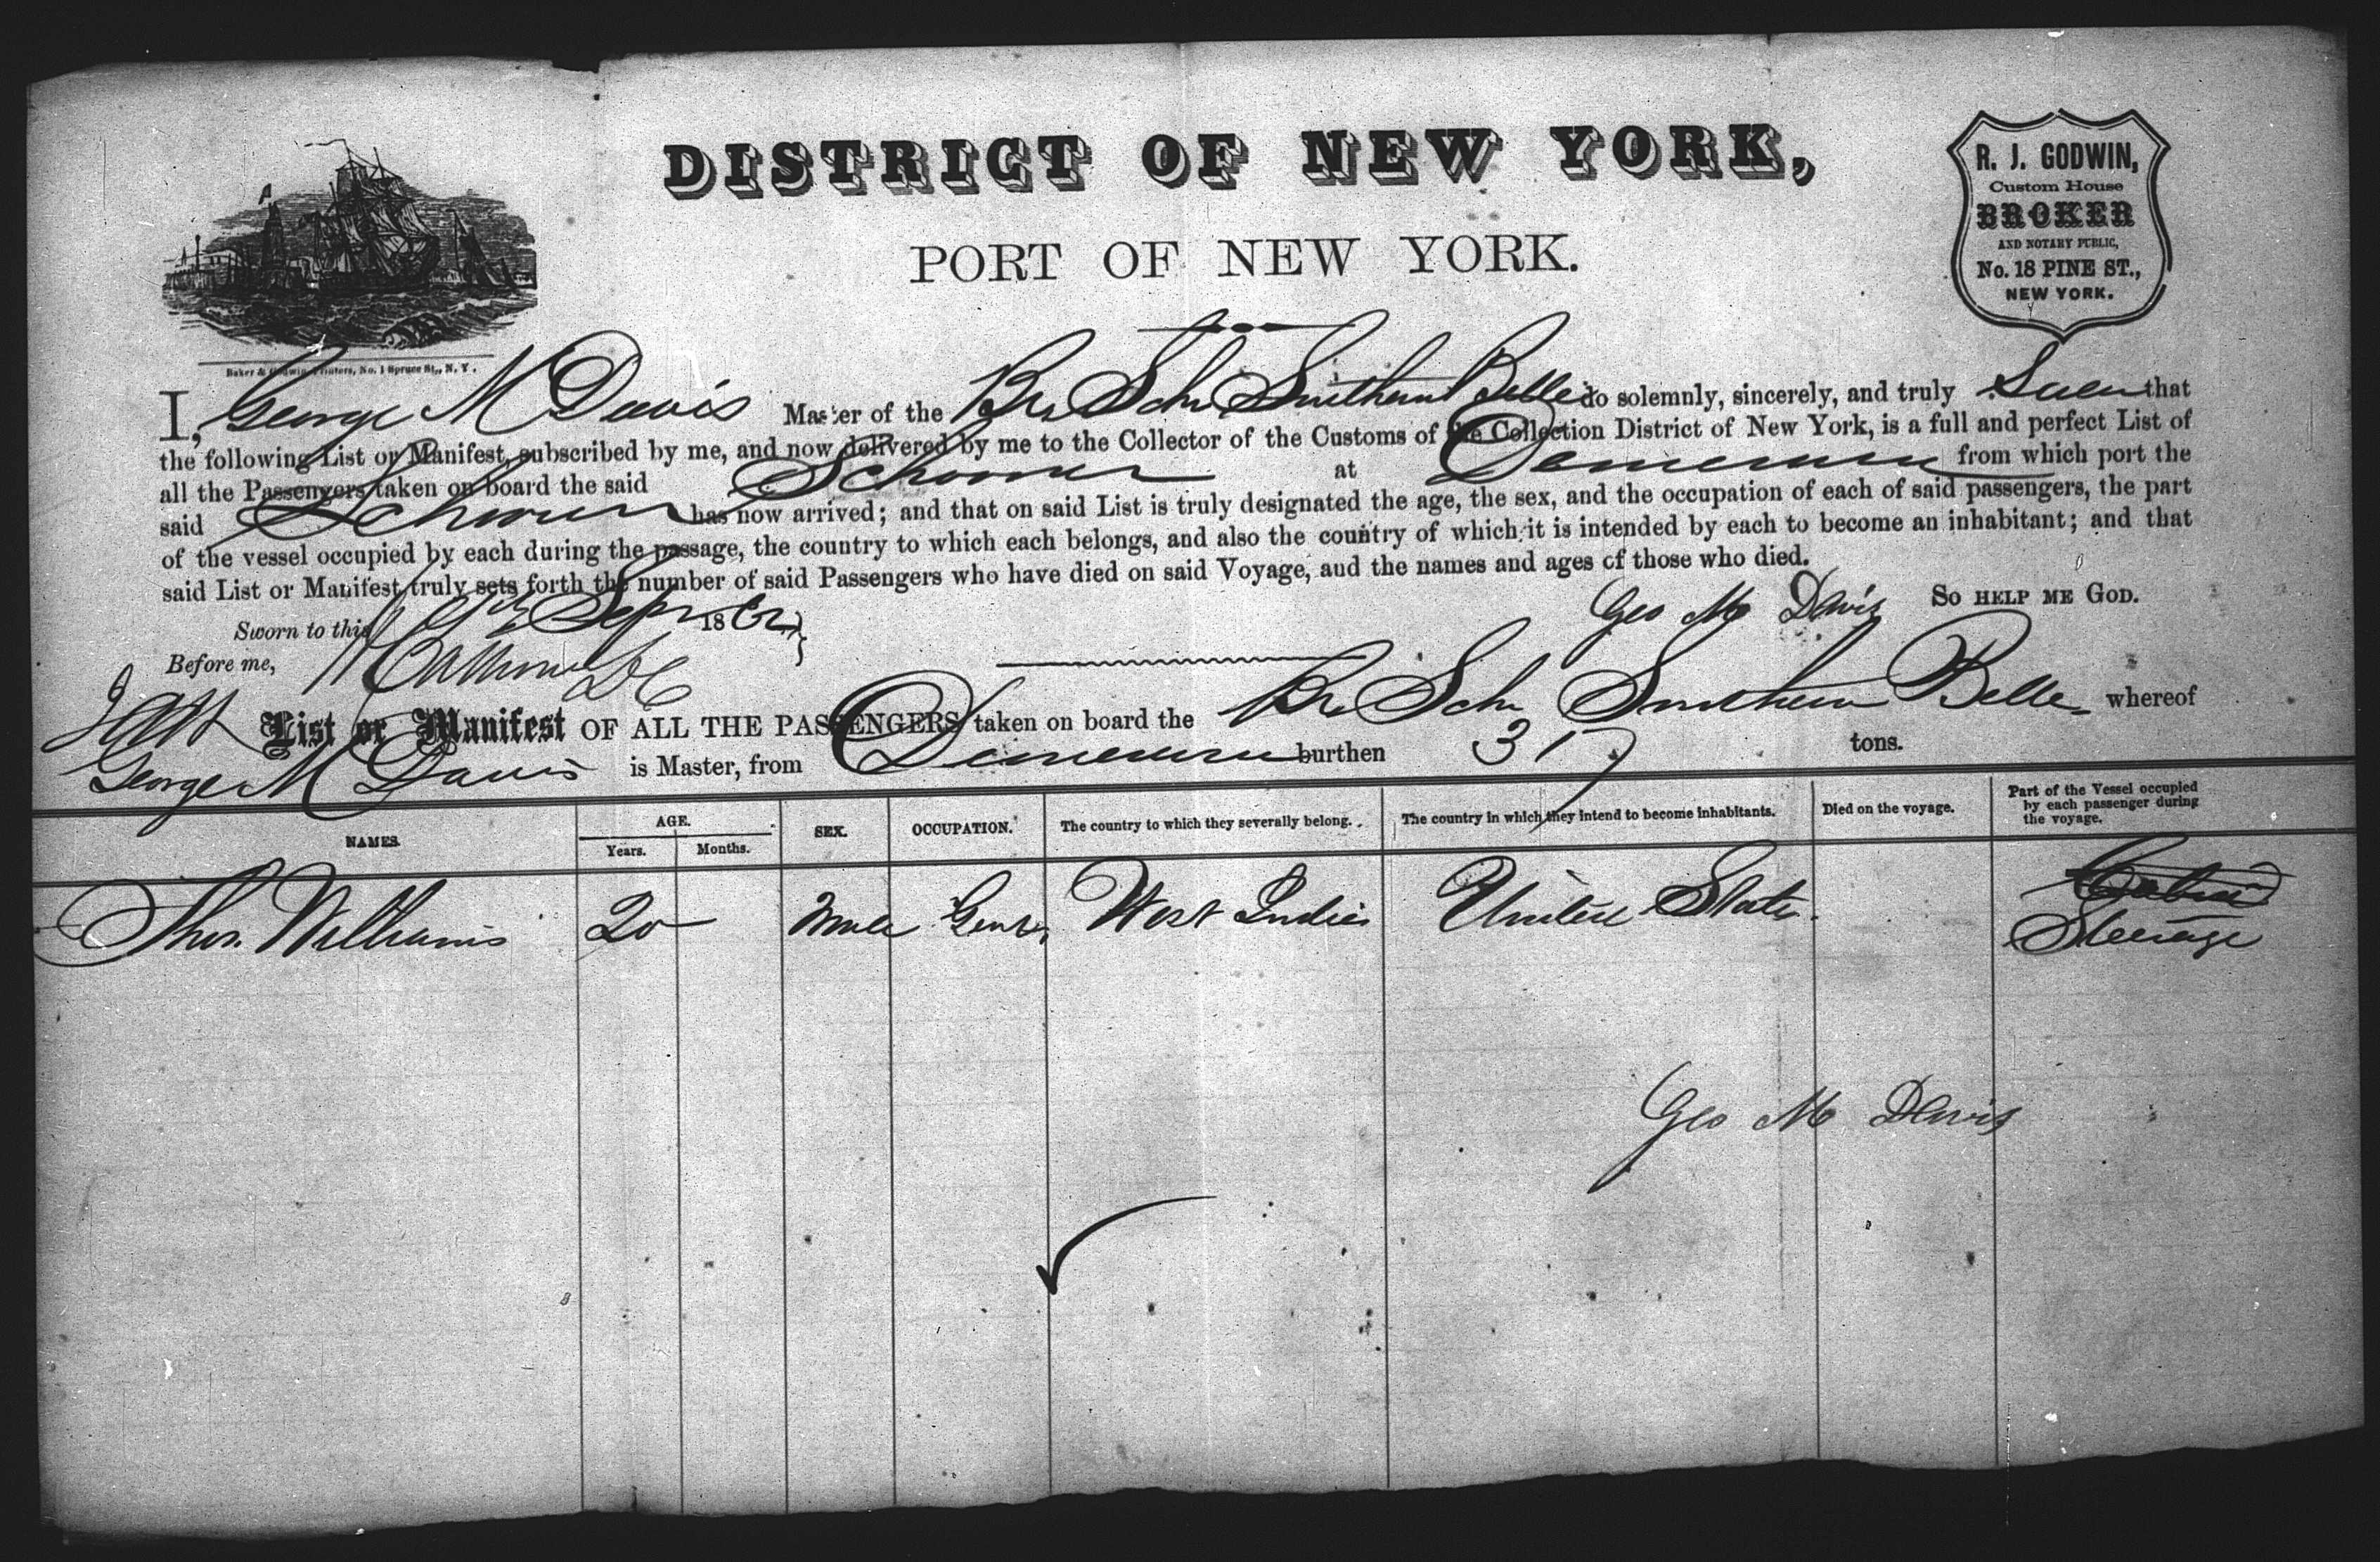 DISTRICT OF NEW YORK,
PORT OF NEW YORK.
R. J. GODWIN,
Custom House
BROKER
AND NOTARY PUBLIC,
No. 18 PINE ST.,
NEW YORK.
Baker & Godwin, Printers, No. 1 Spruce St., N. Y.
I, George M Davis Master of the Br Schr Southern Belle do solemnly, sincerely, and truly Swear that
the following List or Manifest, subscribed by me, and now delivered by me to the Collector of the Customs of the Collection District of New York, is a full and perfect List of
all the Passengers taken on board the said Schooner at Demerara from which port the
said Schooner has now arrived; and that on said List is truly designated the age, the sex, and the occupation of each of said passengers, the part
of the vessel occupied by each during the passage, the country to which each belongs, and also the country of which it is intended by each to become an inhabitant; and that
said List or Manifest truly sets forth the number of said Passengers who have died on said Voyage, and the names and ages of those who died.
Geo M Davis SO HELP ME GOD.
Sworn to this Sep 1862
Before me,
List or Manifest OF ALL THE PASSENGERS taken on board the Br Schr Southern Belle whereof
George M Davis is Master, from Demerara burthen 317 tons.
NAMES. AGE. Years. Months. SEX. OCCUPATION. The country to which they severally belong. The country in which they intend to become inhabitants. Died on the voyage. Part of the Vessel occupied by each passenger during the voyage.
Thos. Williams 20 Male Gent. West Indies United States Cabin
Steerage
Geo M Davis